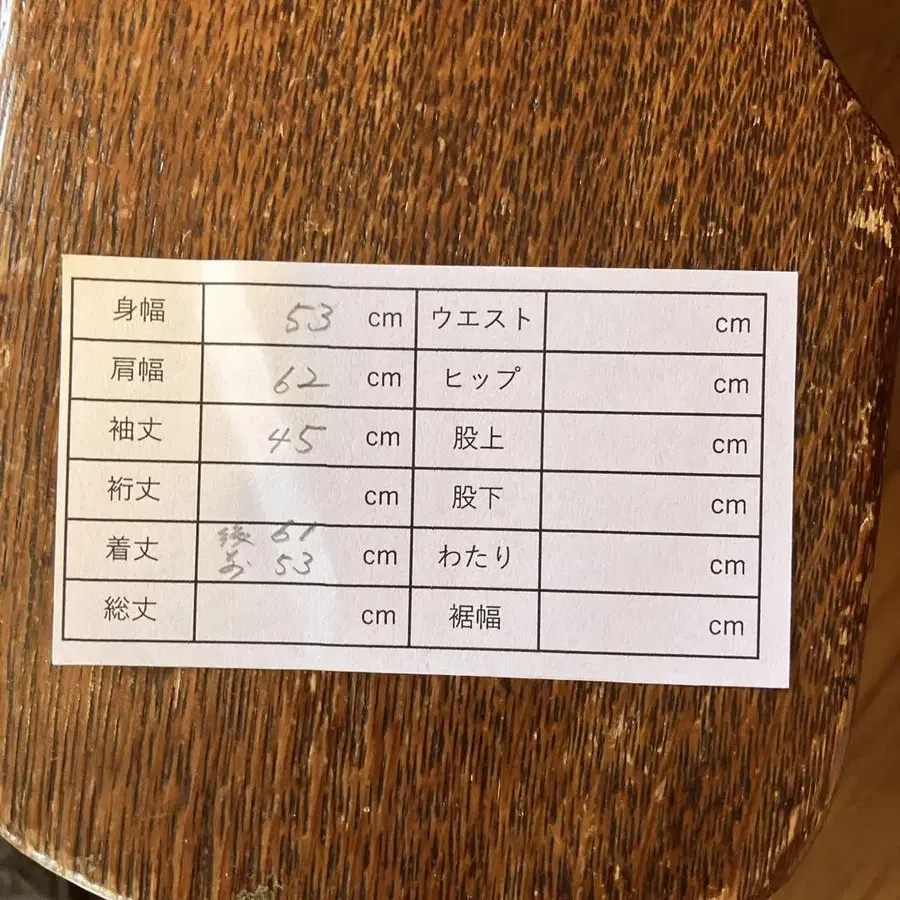 身幅 53 cm ウエスト cm
肩幅 62 cm ヒップ cm
袖丈 45 cm 股上 cm
裄丈 cm 股下 cm
着丈 後 61 cm わたり cm
53
総丈 cm 裾幅 cm